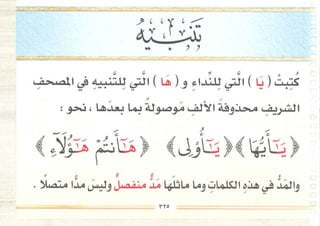 تَنبِيه
كُتِبتْ ( يَا ) الَّتي لِلنِّداءِ و ( هَا ) الَّتي لِلتَّنبيهِ في المصحفِ
الشريفِ محذوفةَ الألفِ مَوصولةً بما بعدَها ، نحو :
﴿ يَٰٓأَيُّهَا ﴾ ﴿ يَٰٓأُوْلِى ﴾ ﴿ هَٰٓأَنتُمْ هَٰٓؤُلَآءِ ﴾
والمَدُّ في هذِهِ الكلماتِ وما ماثلَها مَدٌّ منفصلٌ وليسَ مدًّا متصلًا .
٣٢٥